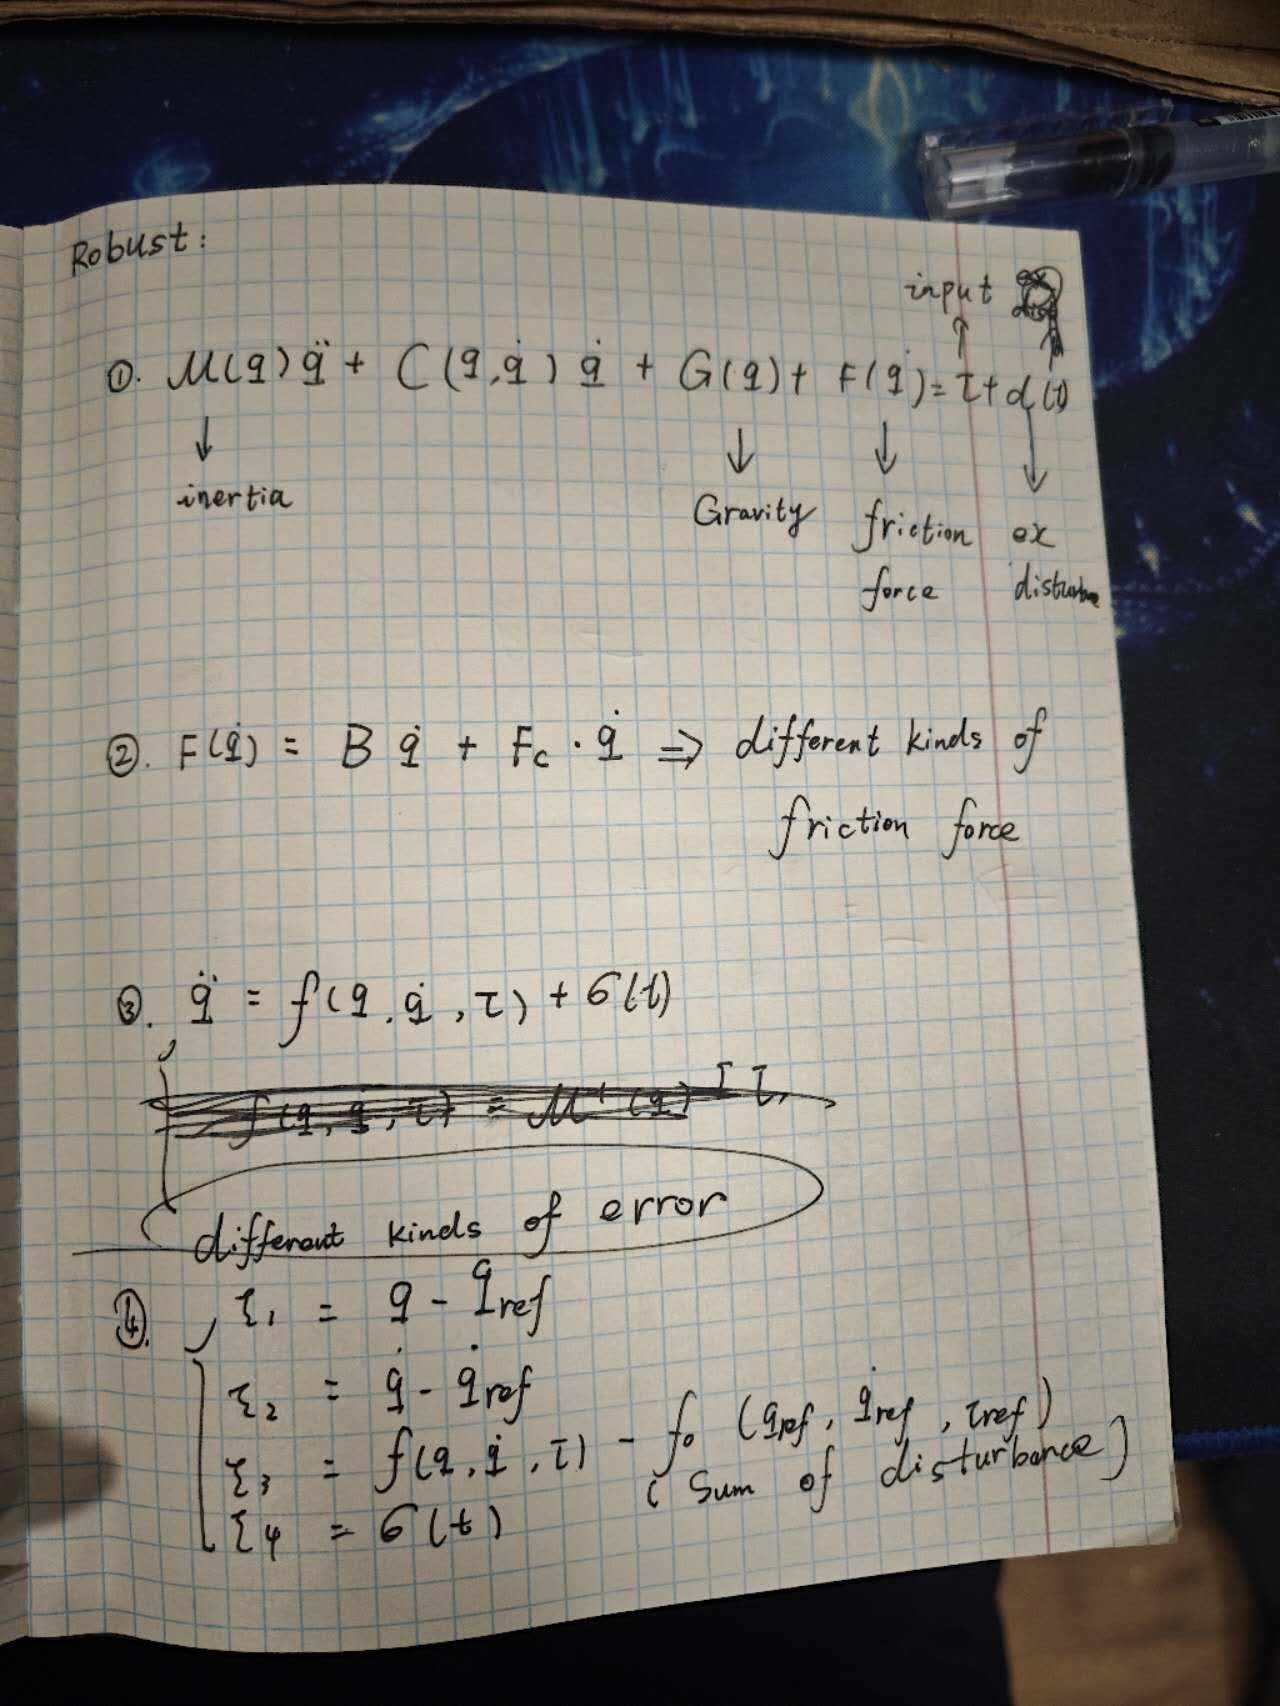 Robust:
input
①. M(q)q̈ + C(q,q̇) q̇ + G(q) + F(q̇) = τ + d(t)
inertia
Gravity friction ex
force disturbance
②. F(q̇) = B q̇ + Fc · q̇ ⇒ different kinds of
friction force
③. q̈ = f(q, q̇, τ) + σ(t)
f(q, q̇, τ) = M⁻¹(q) [τ,
different kinds of error
④. ξ₁ = q - qref
ξ₂ = q̇ - q̇ref
ξ₃ = f(q, q̇, τ) - f₀ (qref, q̇ref, τref)
ξ₄ = σ(t) (Sum of disturbance)